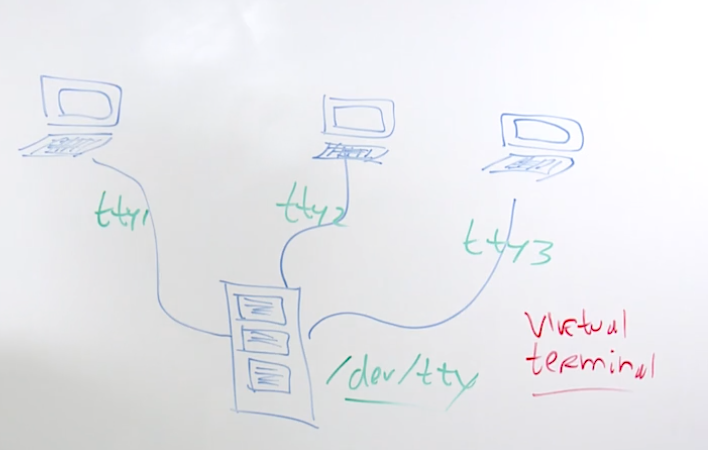 tty1
tty2
tty3
/dev/tty
Virtual
terminal